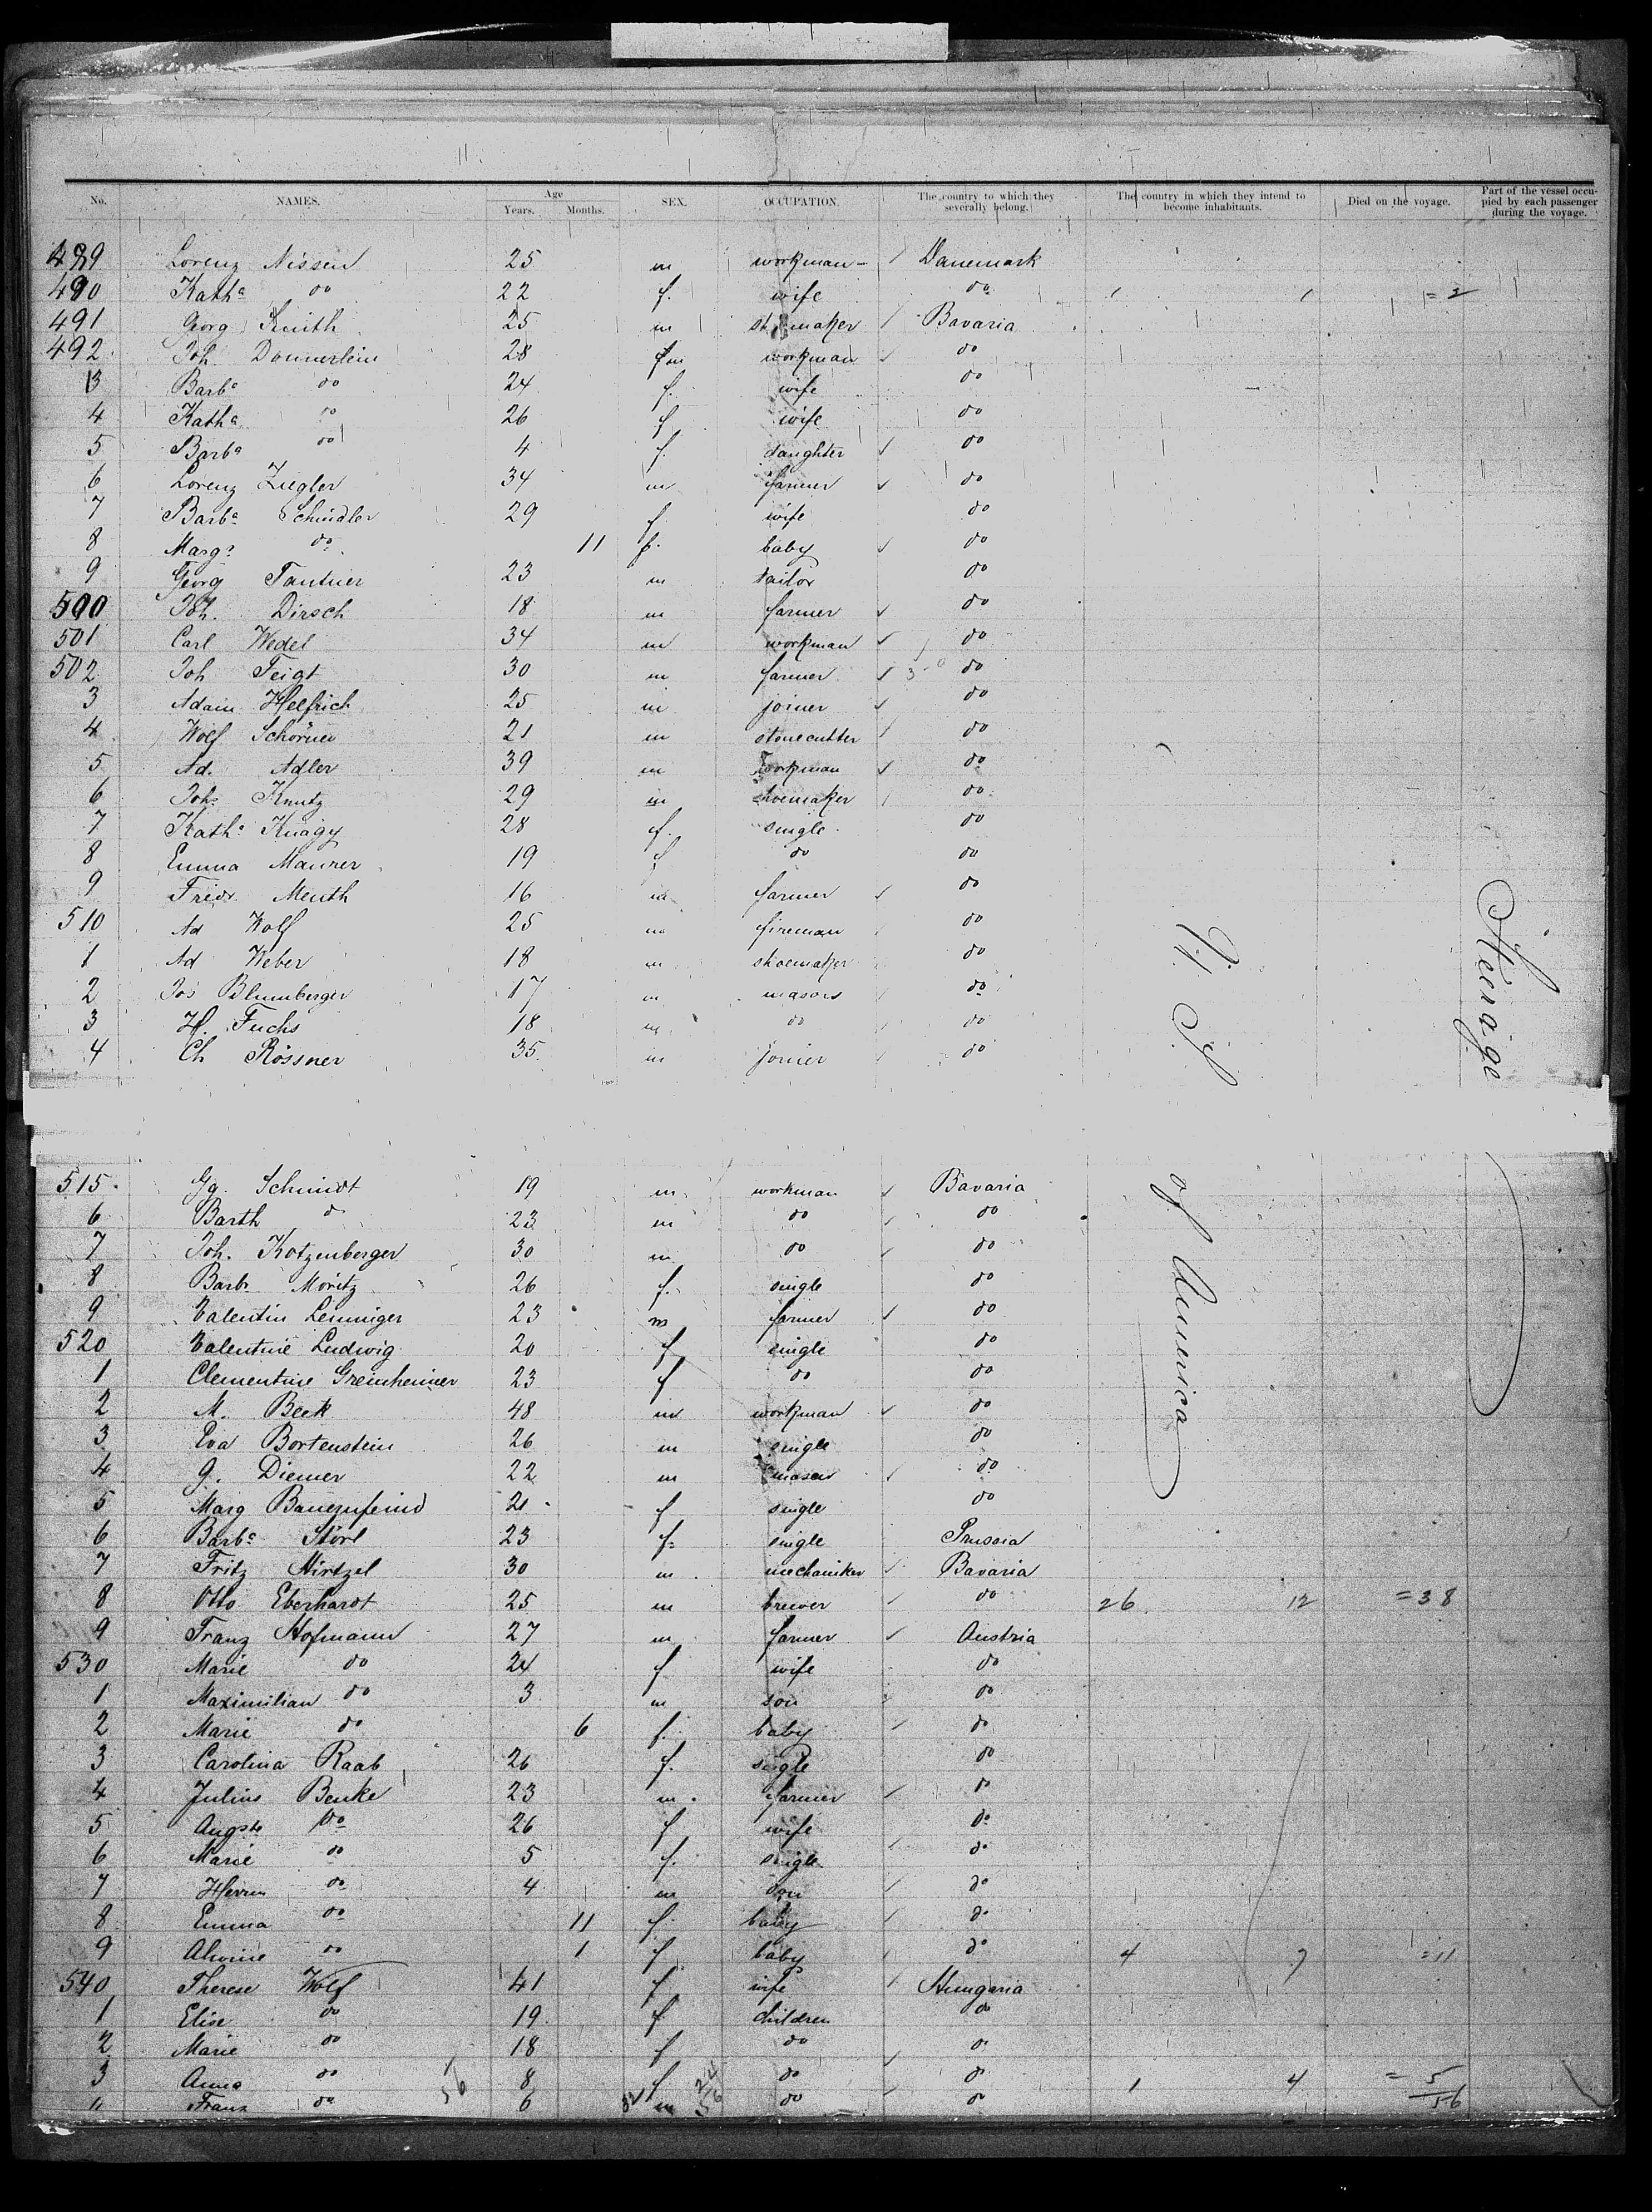 No. NAMES. Age Years. Months. SEX. OCCUPATION. The country to which they severally belong. The country in which they intend to become inhabitants. Died on the voyage. Part of the vessel occupied by each passenger during the voyage.
489 Lorenz Nissen 25 m workman Danemark
490 Kath^a do 22 f. wife do = 2
491 Georg Smith 25 m shoemaker Bavaria
492 Joh. Donnerlein 28 m workman do
3 Barb^a do 24 f. wife do
4 Kath^a do 26 f wife do
5 Barb^a do 4 f. daughter do
6 Lorenz Ziegler 34 m farmer do
7 Barb^a Schindler 29 f wife do
8 Marg^a do 11 f. baby do
9 Georg Tautner 23 m tailor do
500 Joh. Dirsch 18 m farmer do
501 Carl Wedel 34 m workman do
502 Joh Feigt 30 m farmer do
3 Adam Helfrich 25 m joiner do
4 Wolf Schörner 21 m stonecutter do
5 Ad. Adler 39 m workman do
6 Joh. Knutz 29 m shoemaker do
7 Kath^a Knagy 28 f. single do
8 Emma Maurer 19 f do do
9 Fridr. Menth 16 m farmer do
510 Ad Wolf 25 m fireman do
1 Ad Weber 18 m shoemaker do
2 Jos Blumberger 17 m mason do
3 H. Fuchs 18 m do do
4 Ch Rössner 35 m joiner do
U. S. of America
Steerage
515 Gg. Schmidt 19 m workman Bavaria
6 Barth do 23 m do do
7 Joh. Kotzenberger 30 m do do
8 Barb. Moritz 26 f. single do
9 Valentin Lenniger 23 m farmer do
520 Valentine Ludwig 20 f single do
1 Clementine Greinheimer 23 f do do
2 M. Beck 48 m workman do
3 Eva Bortenstein 26 m single do
4 G. Diemer 22 m mason do
5 Marg Bauernfeind 21 f single do
6 Barb^a Störl 23 f. single Prussia
7 Fritz Hirtzel 30 m mechaniker Bavaria
8 Otto Eberhardt 25 m brewer do 26 12 = 38
9 Franz Hofmann 27 m farmer Austria
530 Marie do 24 f wife do
1 Maximilian do 3 m son do
2 Marie do 6 f. baby do
3 Carolina Raab 26 f. single do
4 Julius Benke 23 m. farmer do
5 Augste do 26 f wife do
6 Marie do 5 f. single do
7 Herm do 4 m son do
8 Emma do 11 f. baby do
9 Alwine do 1 f. baby do 4 7 = 11
540 Therese Wolf 41 f wife Hungaria
1 Elise do 19 f children do
2 Marie do 18 f do do
3 Anna do 8 f do do 1 4 = 5
4 Franz do 6 m do do 56
56 32 24 56